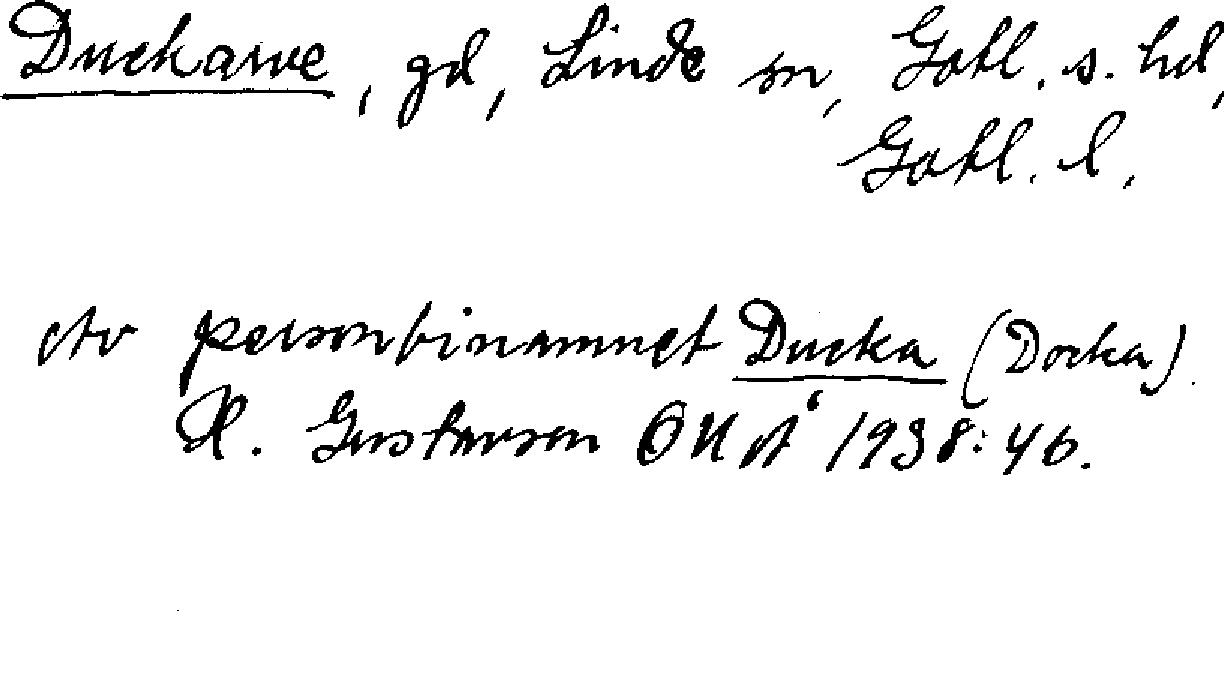 Duckarve, gd, Linde sn, Gotl. s. hd,
Gotl. l.
personbinamnet Ducka (Docka).
H. Gustavson 1938:46.